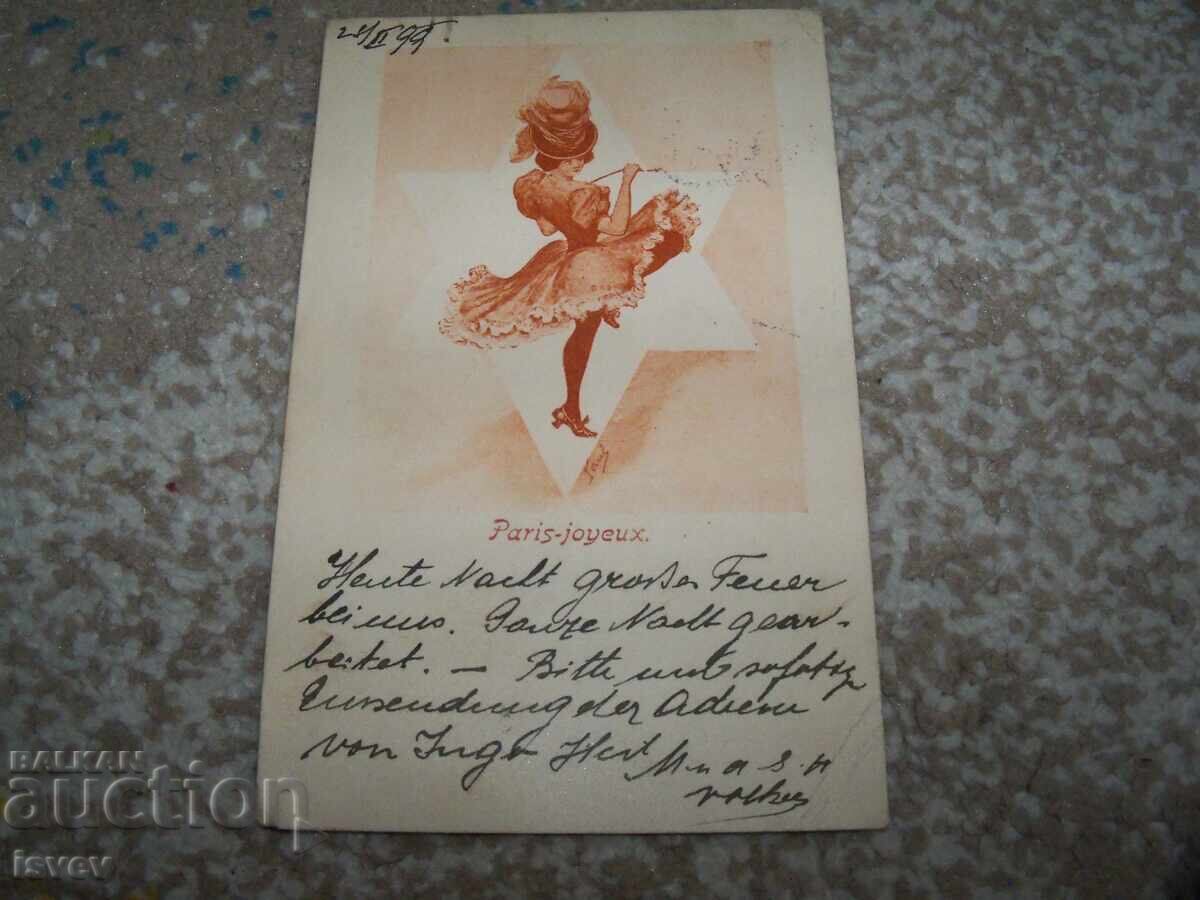 Paris-joyeux.
Heute Nacht großes Feuer
bei uns. Ganze Nacht gear-
beitet. — Bitte um sofortige
Zusendung der Adresse
von
BALKAN
auction
isvev